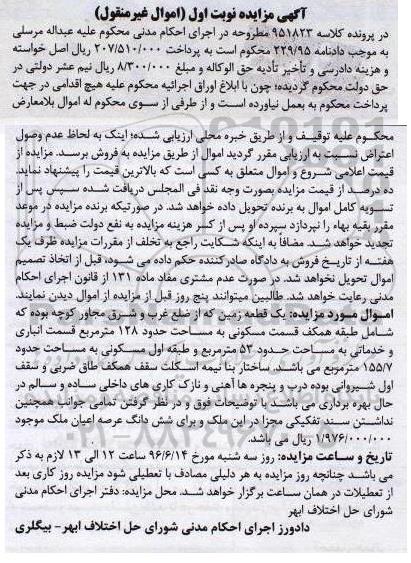 آگهی مزایده نوبت اول (اموال غیرمنقول)
در پرونده کلاسه ۹۵۱۸۲۳ مطروحه در اجرای احکام مدنی محکوم علیه عبداله مرسلی
به موجب دادنامه ۲۲۹/۹۵ محکوم است به پرداخت ۲۰۷/۵۱۰/۰۰۰ ریال اصل خواسته
و هزینه دادرسی و تأخیر تأدیه حق الوکاله و مبلغ ۸/۳۰۰/۰۰۰ ریال نیم عشر دولتی در
حق دولت محکوم گردیده؛ چون با ابلاغ اوراق اجرائیه محکوم علیه هیچ اقدامی در جهت
پرداخت محکوم به بعمل نیاورده است و از طرفی از سوی محکوم له اموال بلامعارض
محکوم علیه توقیف و از طریق خبره محلی ارزیابی شده؛ اینک به لحاظ عدم وصول
اعتراض نسبت به ارزیابی مقرر گردید اموال از طریق مزایده به فروش برسد. مزایده از
قیمت اعلامی شروع و اموال متعلق به کسی است که بالاترین قیمت را پیشنهاد نماید.
ده درصد از قیمت مزایده بصورت وجه نقد فی المجلس دریافت شده سپس پس از
تسویه کامل اموال به برنده تحویل داده خواهد شد. در صورتیکه برنده مزایده در موعد
مقرر بقیه بهاء را نپردازد سپرده او پس از کسر هزینه مزایده به نفع دولت ضبط و مزایده
تجدید خواهد شد. مضافاً به اینکه شکایت راجع به تخلف از مقررات مزایده ظرف یک
هفته از تاریخ فروش به دادگاه صادرکننده حکم داده می شود، قبل از اتخاذ تصمیم
اموال تحویل نخواهد شد. در صورت عدم مشتری مفاد ماده ۱۳۱ از قانون اجرای احکام
مدنی رعایت خواهد شد. طالبین میتوانند پنج روز قبل از مزایده از اموال دیدن نمایند.
اموال مورد مزایده: یک قطعه زمین که از ضلع غرب و شرق مجاور کوچه بوده که
شامل طبقه همکف قسمت مسکونی به مساحت حدود ۱۲۸ مترمربع قسمت انباری
و خدماتی به مساحت حدود ۵۲ مترمربع و طبقه اول مسکونی به مساحت حدود
۱۵۵/۷ مترمربع می باشد. ساختار بنا نیمه اسکلت سقف همکف طاق ضربی و سقف
اول شیروانی بوده درب و پنجره ها آهنی و نازک کاری های داخلی ساده و سالم در
حال بهره برداری می باشد. با توضیحات فوق و در نظر گرفتن تمامی جوانب همچنین
نداشتن سند تفکیکی مجزا در این ملک و برای شش دانگ عرصه اعیان ملک موجود
۱/۹۷۶/۰۰۰/۰۰۰ ریال می باشد.
تاریخ و ساعت مزایده: روز سه شنبه مورخ ۹۶/۶/۱۴ ساعت ۱۲ الی ۱۳ لازم به ذکر
می باشد چنانچه روز مزایده به هر دلیلی مصادف با تعطیلی شود مزایده روز کاری بعد
از تعطیلات در همان ساعت برگزار خواهد شد. محل مزایده: دفتر اجرای احکام مدنی
شورای حل اختلاف ابهر
دادورز اجرای احکام مدنی شورای حل اختلاف ابهر- بیگلری